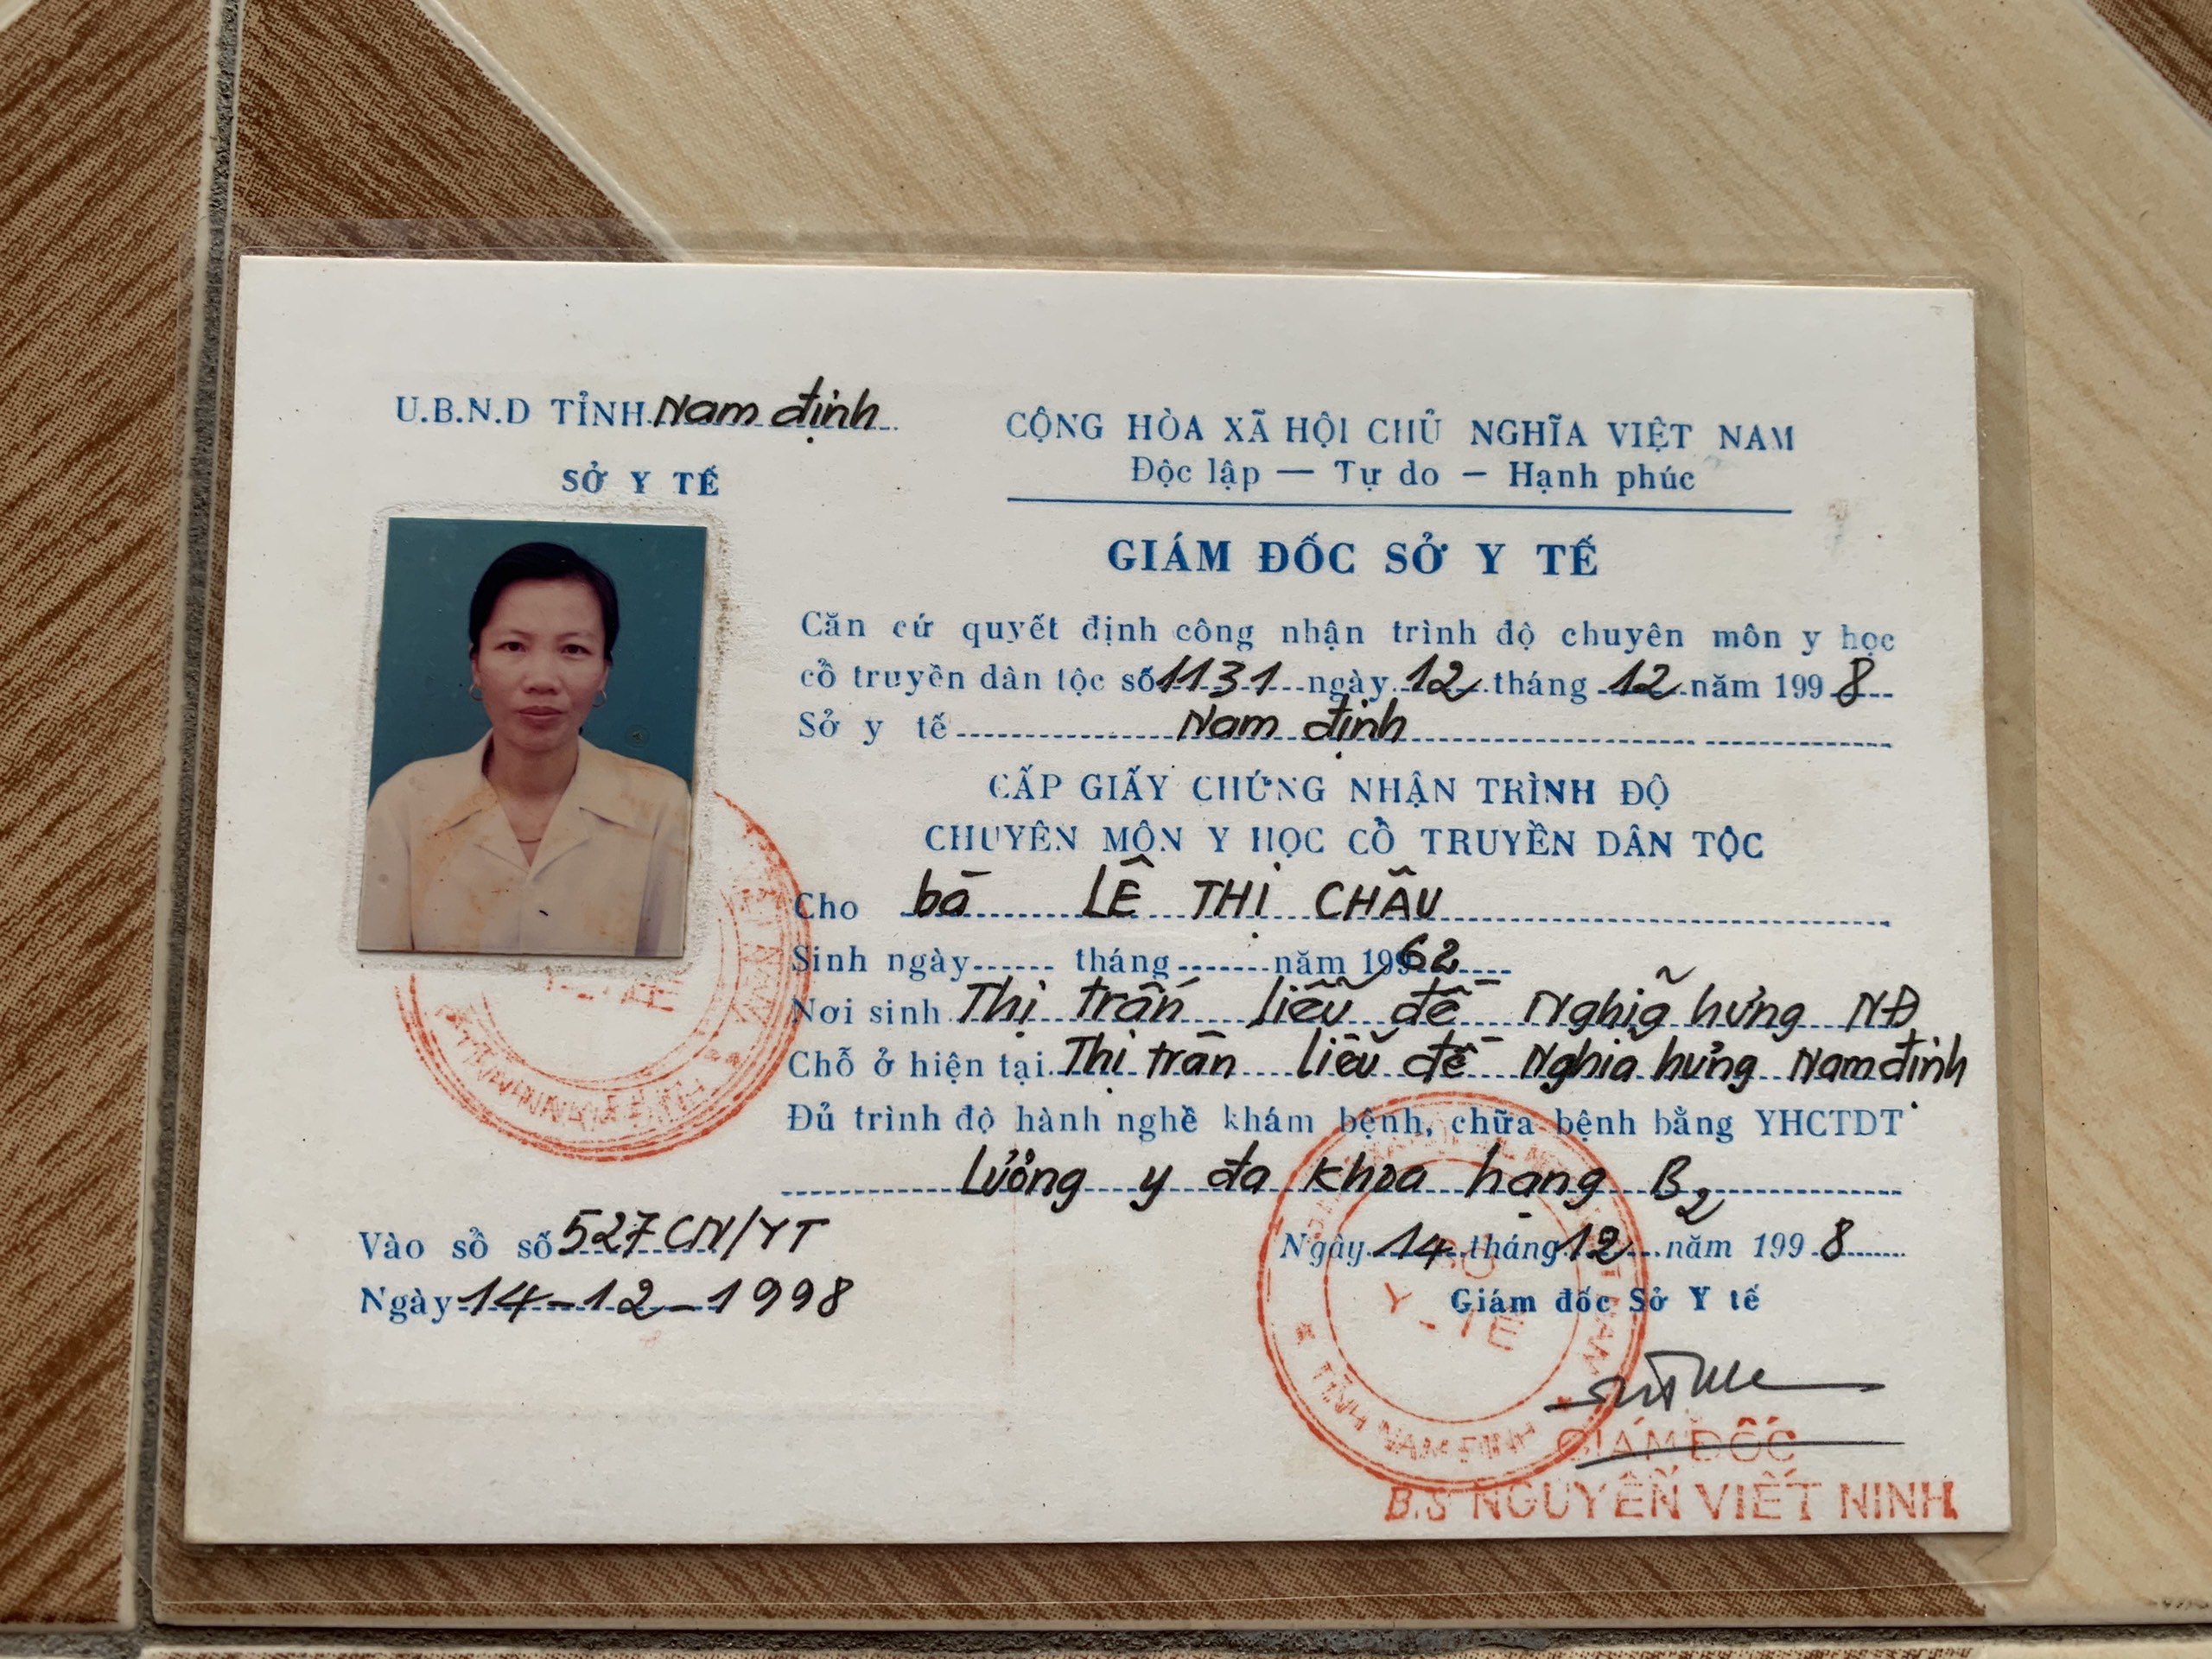 U.B.N.D TỈNH Nam định
SỞ Y TẾ
CỘNG HÒA XÃ HỘI CHỦ NGHĨA VIỆT NAM
Độc lập — Tự do — Hạnh phúc
GIÁM ĐỐC SỞ Y TẾ
Căn cứ quyết định công nhận trình độ chuyên môn y học
cổ truyền dân tộc số 1131 ngày 12 tháng 12 năm 1998
Sở y tế Nam định
CẤP GIẤY CHỨNG NHẬN TRÌNH ĐỘ
CHUYÊN MÔN Y HỌC CỔ TRUYỀN DÂN TỘC
Cho bà LÊ THỊ CHÂU
Sinh ngày tháng năm 1962
Nơi sinh Thị trấn liễu đề Nghĩa hưng NĐ
Chỗ ở hiện tại Thị trấn liễu đề Nghĩa hưng Nam định
Đủ trình độ hành nghề khám bệnh, chữa bệnh bằng YHCTDT
Lương y đa khoa hạng B2
Vào sổ số 527 CN/YT
Ngày 14-12-1998
Ngày 14 tháng 12 năm 1998
Giám đốc Sở Y tế
SỞ
Y-TẾ
TỈNH NAM ĐỊNH
GIÁM ĐỐC
B.S NGUYỄN VIẾT NINH